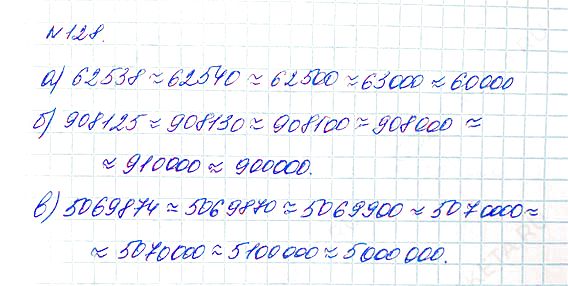 №128.
а) 62538 ≈ 62540 ≈ 62500 ≈ 63000 ≈ 60000
б) 908125 ≈ 908130 ≈ 908100 ≈ 908000 ≈
≈ 910000 ≈ 900000.
в) 5069874 ≈ 5069870 ≈ 5069900 ≈ 5070000 ≈
≈ 5070000 ≈ 5100000 ≈ 5000000.